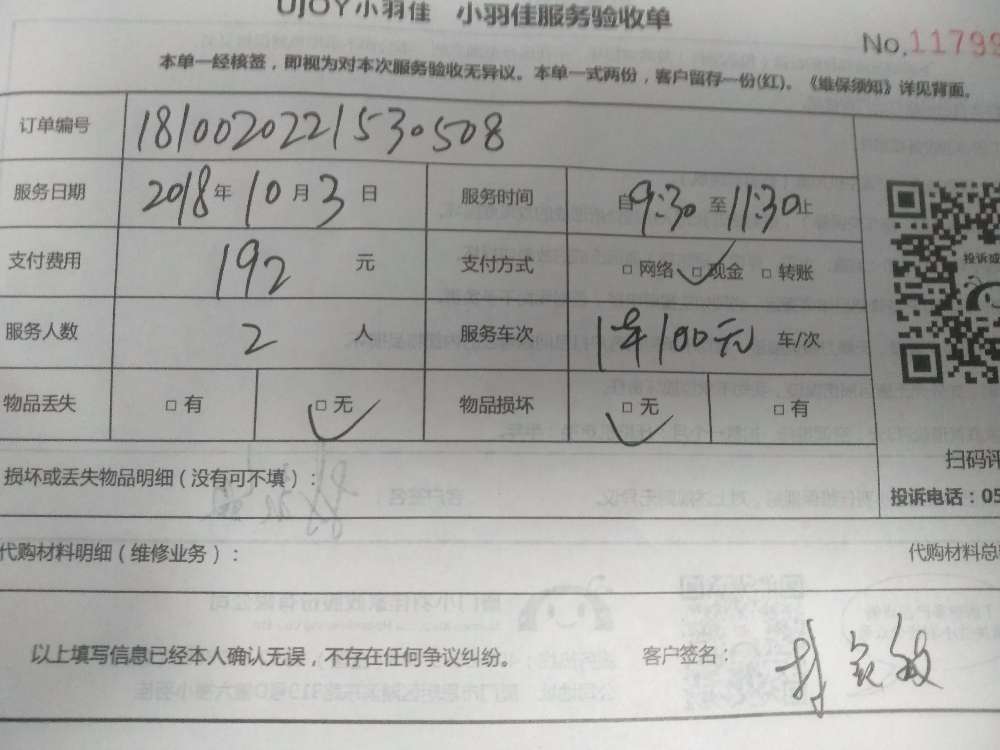 UJOY小羽佳 小羽佳服务验收单
No.11799
本单一经核签，即视为对本次服务验收无异议。本单一式两份，客户留存一份(红)。《维保须知》详见背面。
订单编号 1810020221530508
服务日期 2018年10月3日 服务时间 自9:30至11:30止
支付费用 192 元 支付方式 □网络 □现金 □转账
投诉或
服务人数 2 人 服务车次 1车100元 车/次
物品丢失 □有 □无 物品损坏 □无 □有
扫码评
损坏或丢失物品明细（没有可不填）：
投诉电话：05
代购材料明细（维修业务）： 代购材料总
以上填写信息已经本人确认无误，不存在任何争议纠纷。 客户签名：